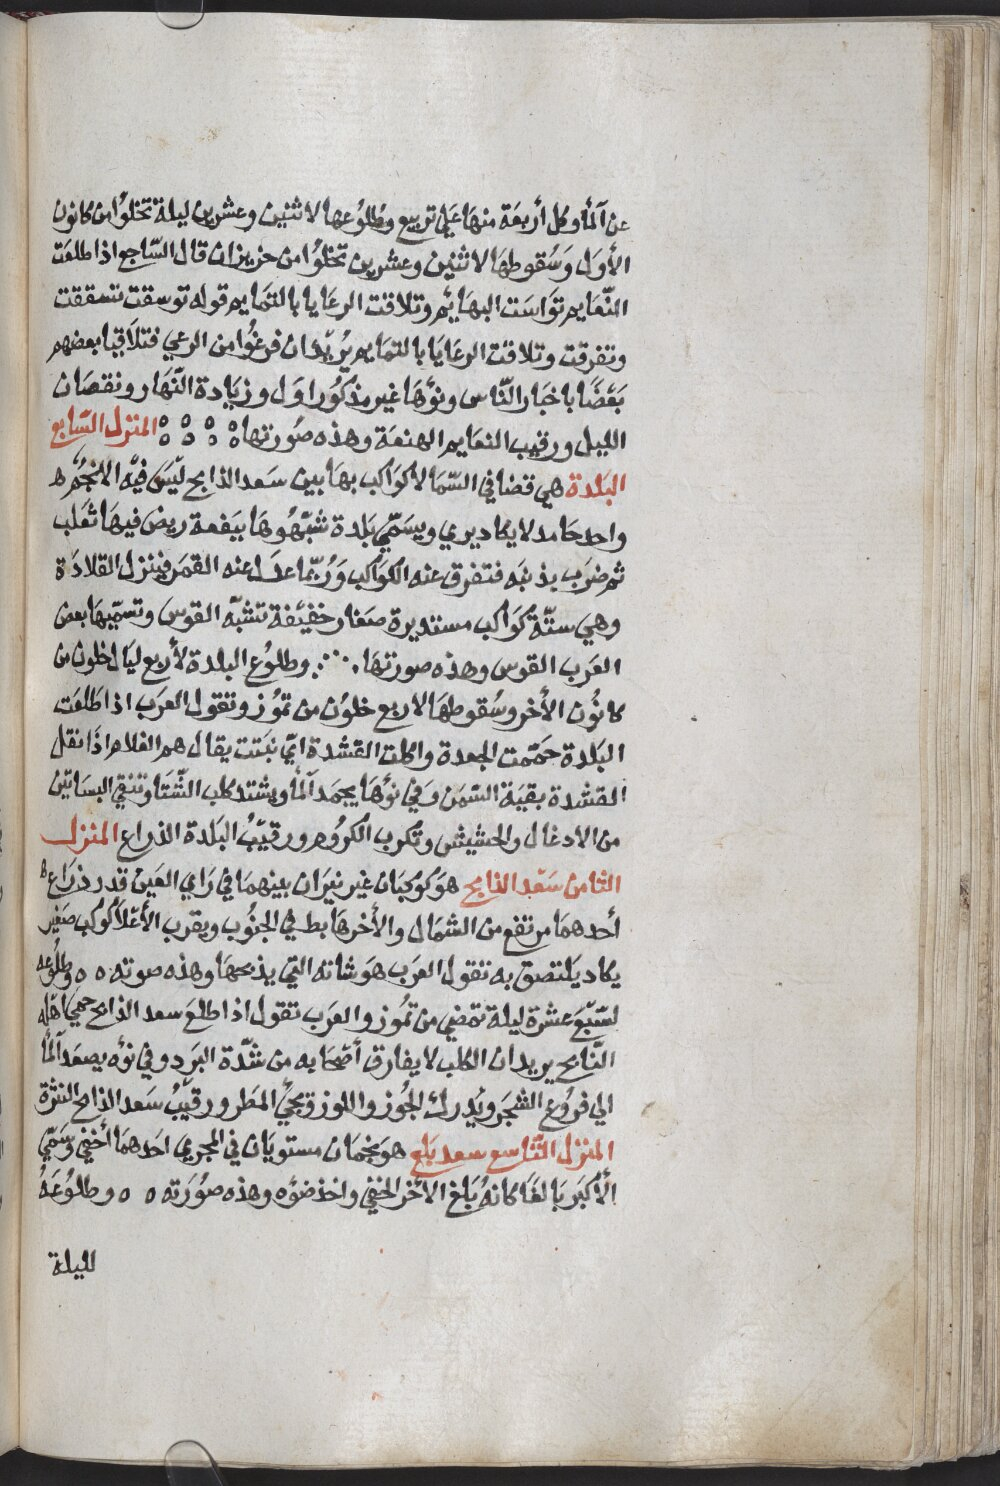 عن آلمأ وكل أربعة منها علي تربيع وطلوعها لاثنين وعشرين ليلة تخلوا من كانون
الأول وسقوطها لاثنين وعشرين تخلوا من حزيران قال الساجع اذا طلعت
النعايم تواست البهايم وتلاقت الرعايا بالتمايم قوله توسقت تسققت
وتفرقت وتلاقت الرعايا بالتمايم يريد ان فرغوا من الرعي فتلاقيا بعضهم
بعضا باخبار الناس ونوها غير مذكور اول وزيادة النهار ونقصان
الليل ورقيب النعايم الهنعة وهذه صورتها المنزل السابع
البلدة هي قضا في السما لا كواكب بها بين سعد الذابح ليس فيه الا نجم ه
واحد حامد لا يكاد يري ويسمي بلدة شبهوها بيفعة ريض فيها ثعلب
ثم ضرب بذنبه فتفرق عنه الكواكب وربما عدل عنه القمر فينزل القلادة
وهي ستة كواكب مستديرة صغار خفيفة تشبه القوس وتسميها بعض
العرب القوس وهذه صورتها وطلوع البلدة لأربع ليال خلون من
كانون الأخر وسقوطها لاربع خلون من تموز وتقول العرب اذا طلعت
البلدة حممت الجعدة واكلت القشدة اي نبتت يقال هم الغلام اذا نقل
القشدة بقية السمن وفي نوها يجمد آلمأ ويشتد كلب الشتا وتنقي البساتين
من الادغال والحشيش وتكرب الكروم ورقيب البلدة الذراع المنزل
الثامن سعد الذابح هو كوكبان غير نيران بينهما في راي العين قدر ذراع ه
أحدهما مرتفع من الشمال والأخر هابط في الجنوب وبقرب الأعلا كوكب صغير
يكاد يلتصق به تقول العرب هو شاته التي يذبحها وهذه صوته ه ه وطلوعه
لسبع عشرة ليلة تمضي من تموز والعرب تقول اذا طلع سعد الذابح حمي اهله
النابح يريد ان الكلب لا يفارق أصحابه من شدة البرد وفي نوه يصعد آلمأ
الي فروع الشجر ويدرك الجوز واللوز ويجي المطر ورقيب سعد الذابح النثرة
المنزل التاسع سعد بلع هو نجمان مستويان في المجري احدهما أخفي وسمي
الأكبر بالغا كانه بلغ الأخر الخفي واخذ ضوه وهذه صورته ه ه وطلوعه
لليلة